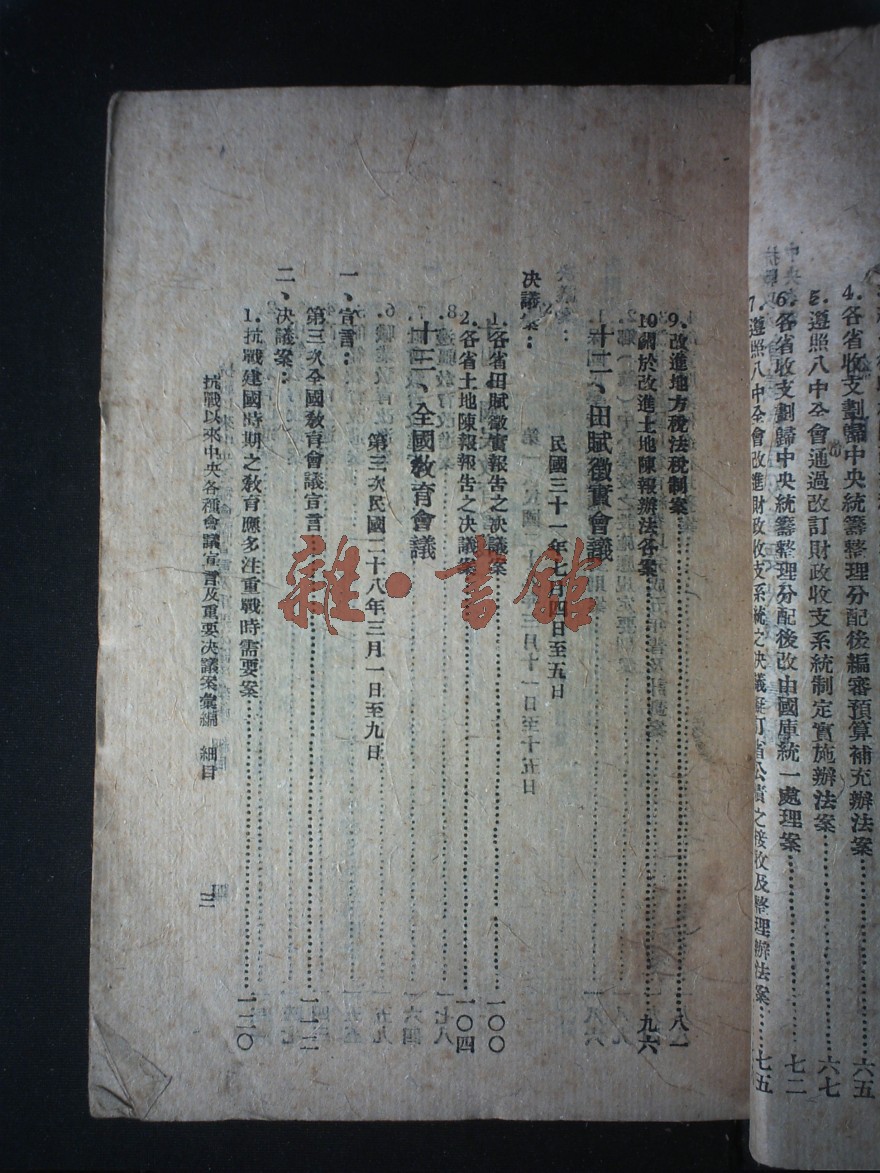 4.各省收支劃歸中央統籌整理分配後編審預算補充辦法案……六五
5.遵照八中全會通過改訂財政收支系統制定實施辦法案……六七
6.各省收支劃歸中央統籌整理分配後改由國庫統一處理案……七二
7.遵照八中全會改進財政收支系統之決議
省公債之接收及整理辦法案……七五
9.改進地方稅法稅制案……八一
10.關於改進土地陳報辦法各案……九六
十二、田賦徵實會議
民國三十一年七月四日至五日
決議案：
1.各省田賦徵實報告之決議案……一〇〇
2.各省土地陳報報告之決議案……一〇四
十三、全國教育會議
第三次民國二十八年三月一日至九日
一、宣言：
第三次全國教育會議宣言……一一二
二、決議案：
1.抗戰建國時期之教育應多注重戰時需要案……一二〇
抗戰以來中央各種會議宣言及重要決議案彙編 細目
三
雜·書館